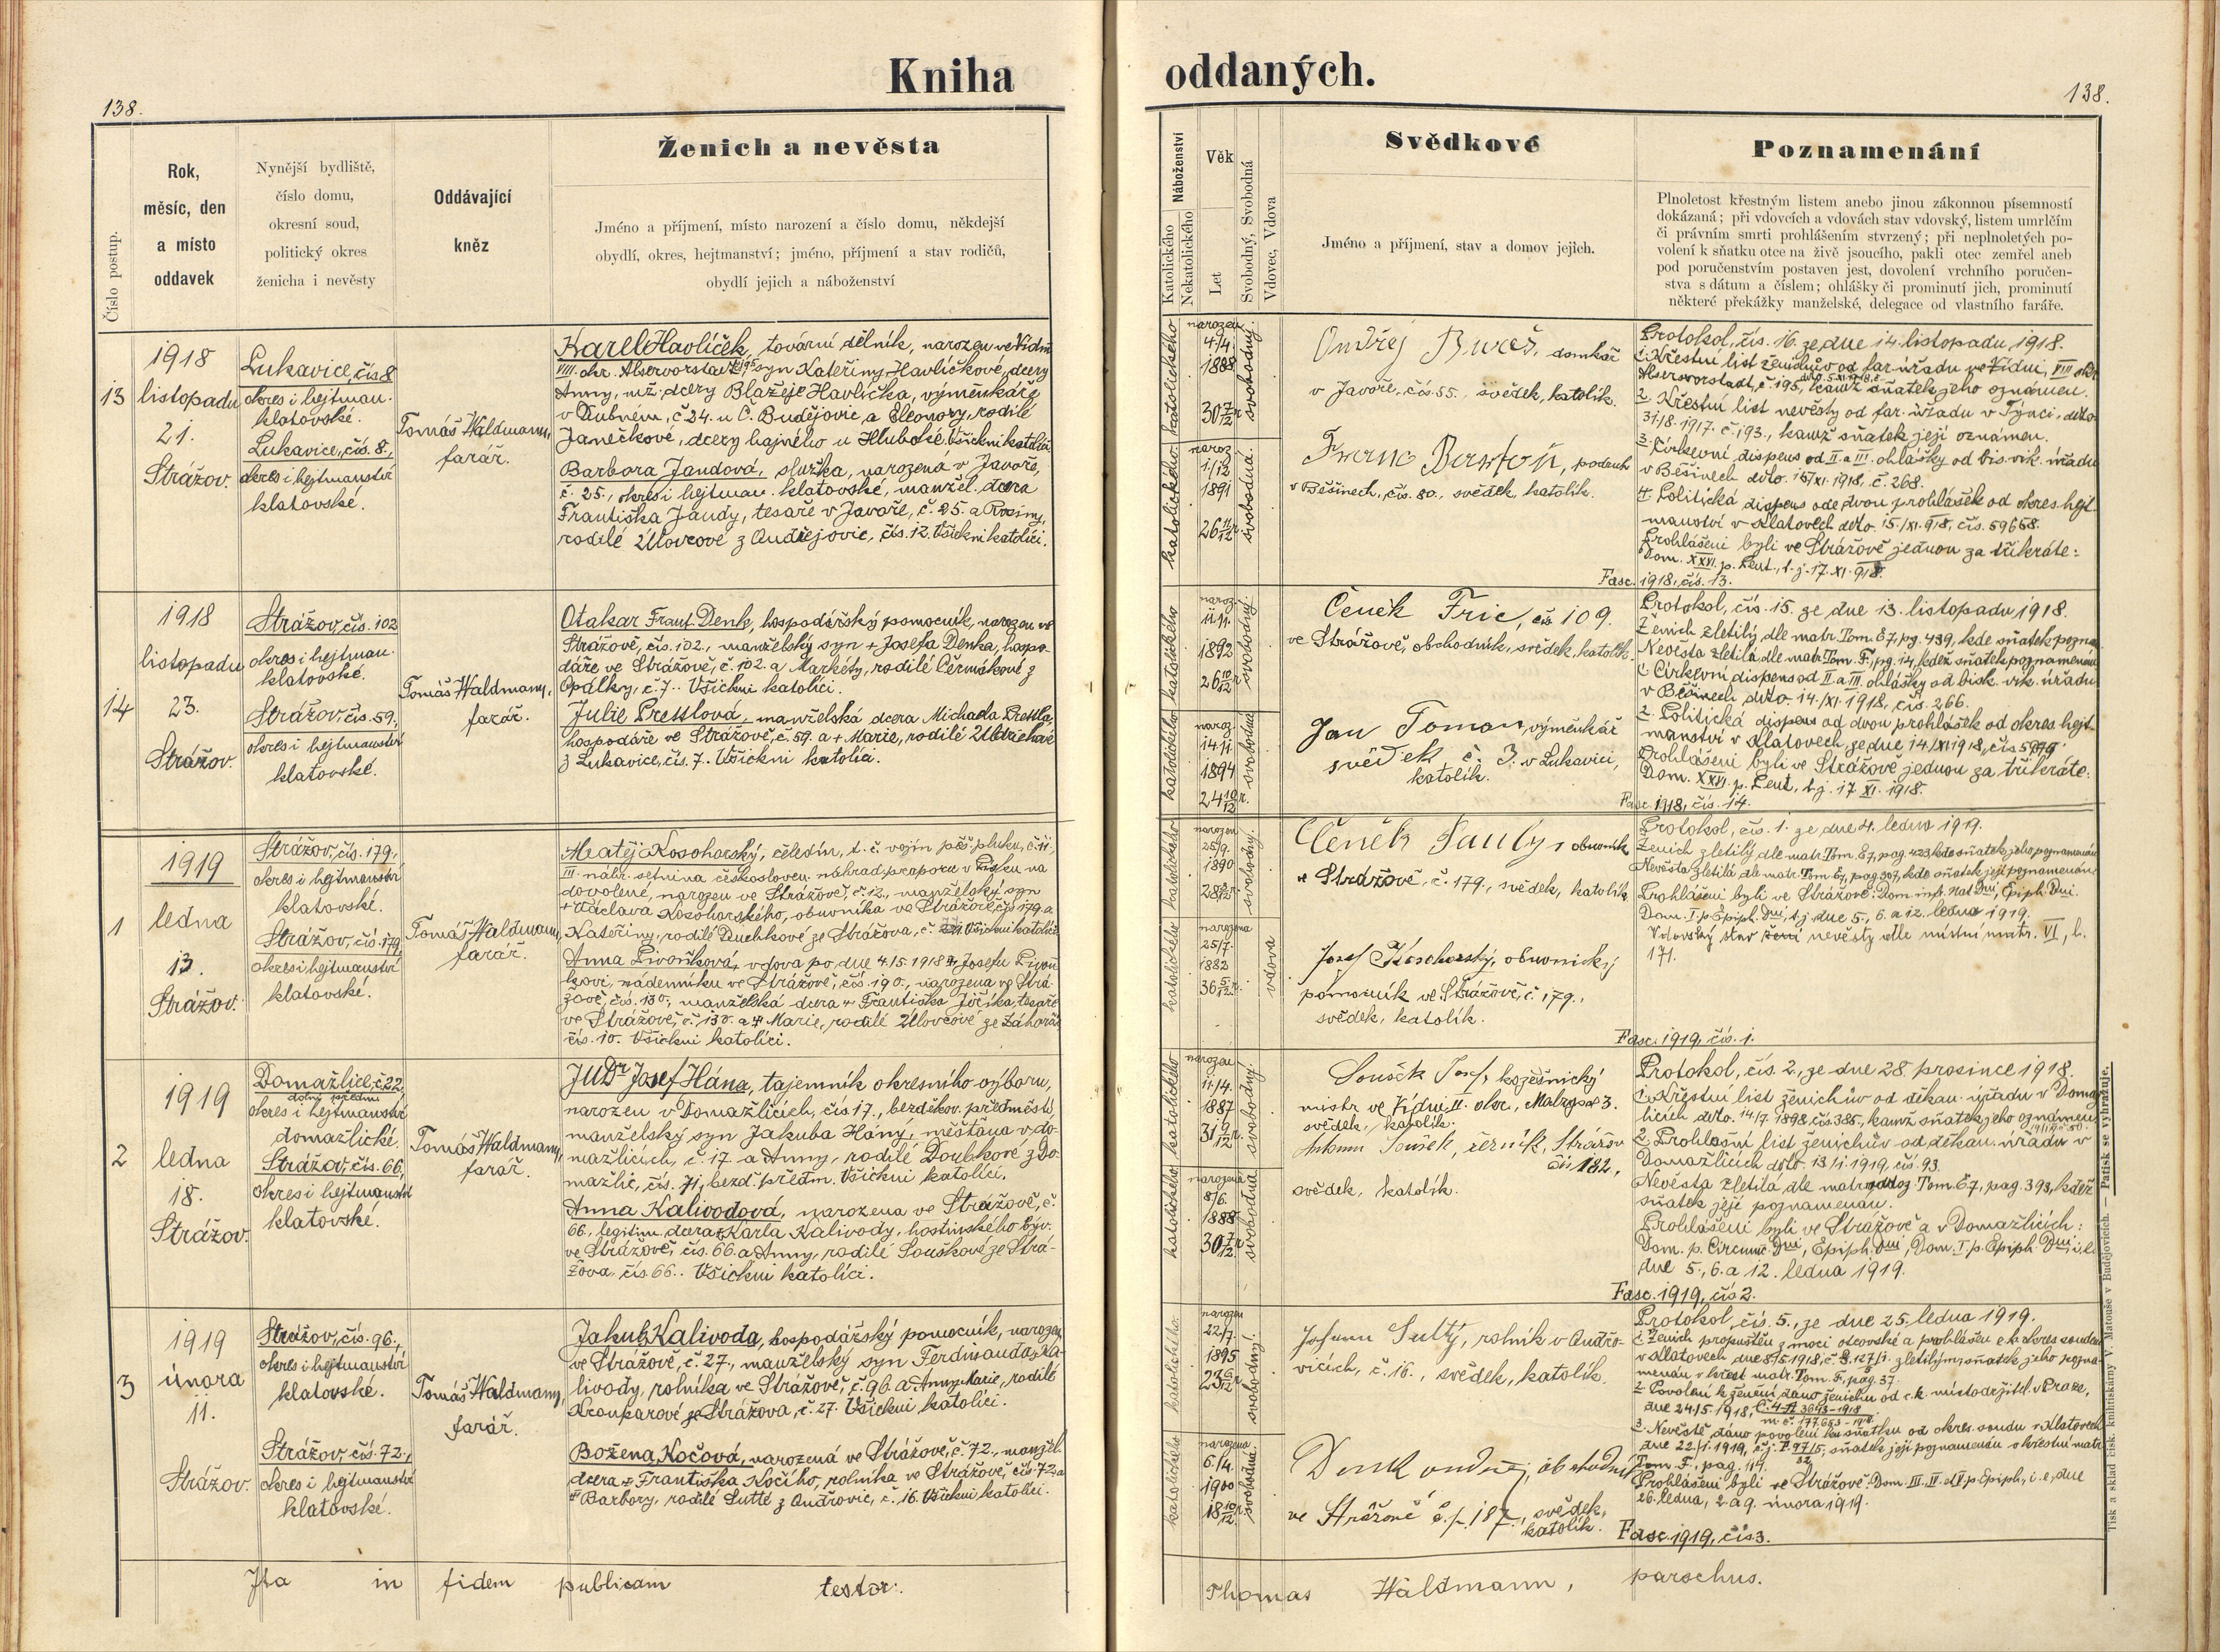 Kniha oddaných.
138.
138.
Číslo postup.
Rok,
měsíc, den
a místo
oddavek
Nynější bydliště,
číslo domu,
okresní soud,
politický okres
ženicha i nevěsty
Oddávající
kněz
Ženich a nevěsta
Jméno a příjmení, místo narození a číslo domu, někdejší
obydlí, okres, hejtmanství; jméno, příjmení a stav rodičů,
obydlí jejich a náboženství
Náboženství
Katolického
Nekatolického
Věk
Let
Svobodný, Svobodná
Vdovec, Vdova
Svědkové
Jméno a příjmení, stav a domov jejich.
Poznamenání
Plnoletost křestným listem anebo jinou zákonnou písemností
dokázaná; při vdovcích a vdovách stav vdovský, listem umrlčím
či právním smrti prohlášením stvrzený; při neplnoletých po-
volení k sňatku otce na živě jsoucího, pakli otec zemřel aneb
pod poručenstvím postaven jest, dovolení vrchního poručen-
stva s dátum a číslem; ohlášky či prominutí jich, prominutí
některé překážky manželské, delegace od vlastního faráře.
13
1918
listopadu
21.
Strážov.
Lukavice, čís 8
okres i hejtman.
klatovské.
Lukavice, čís. 8.,
okres i hejtmanství
klatovské.
Tomáš Waldmann,
farář.
Karel Havlíček, tovární dělník, narozen ve Vídni
VIII. okr. Alservorstadt č. 195 syn Kateřiny Havlíčkové, dcery
Anny, mž. dcery Blažeje Havlíčka, výměnkáře
v Dubném, č. 24. u Č. Budějovic a Eleonory, rodilé
Janečkové, dcery hajného u Hluboké. Všichni katolíci.
Barbora Jandová, služka, narozená v Javoře,
č. 25., okres i hejtman. klatovské, manžel. dcera
Františka Jandy, tesaře v Javoře, č. 25. a Rosiny,
rodilé Úlovcové z Ondřejovic, čís. 12. Všichni katolíci.
katolického
narozen
4/4.
1888
30 7/12 r
svobodný.
katolického
naroz
1/12
1891
26 11/12 r
svobodná.
Ondřej Bureš, domkář
v Javoře, čís. 55., svědek, katolík.
Franc Bartoň,
v Běšinech, čís. 80., svědek, katolík.
Protokol, čís. 16. ze dne 14. listopadu 1918.
1. Křestní list ženichův od far. úřadu ve Vídni, VIII okr
Alservorstadt, č. 195, kamž sňatek jeho oznámen.
2. Křestní list nevěsty od far. úřadu v Týnci, ddto
31/8. 1917. č. 193., kamž sňatek její oznámen.
3. Církevní dispens od II. a III. ohlášky od bis. vik. úřadu
v Běšinech ddto. 15/XI. 1918, č. 268.
4. Politická dispens ode dvou prohlášek od okres. hejt-
manství v Klatovech ddto. 15./XI. 918, čís. 59658.
Prohlášeni byli ve Strážově jednou za třikráte:
Dom. XXVI. p. Pent., t. j. 17. XI. 918.
Fasc. 1918, čís. 13.
14
1918
listopadu
23.
Strážov.
Strážov, čís. 102
okres i hejtman.
klatovské.
Strážov čís. 59.,
okres i hejtmanství
klatovské.
Tomáš Waldmann,
farář.
Otakar Frant. Denk, hospodářský pomocník, narozen ve
Strážově, čís. 102., manželský syn + Josefa Denka, hospo-
dáře ve Strážově, č. 102. a Markéty, rodilé Čermákové z
Opálky, č. 7.. Všichni katolíci.
Julie Presslová, manželská dcera Michala Pressla,
hospodáře ve Strážově, č. 59. a + Marie, rodilé
z Lukavice, čís. 7. Všichni katolíci.
katolického
naroz.
11/1.
1892
26 10/12
svobodný.
katolického
naroz.
14/1.
1894
24 10/12 r.
svobodná
Čeněk Fric, čís 109.
ve Strážově, obchodník, svědek, katolík.
Jan Toman, výměnkář
svědek č. 3. v Lukavici,
katolík.
Protokol, čís. 15. ze dne 13. listopadu 1918.
Ženich zletilý, dle matr. Tom. E7, pg. 439, kde sňatek pozna.
Nevěsta zletilá dle matr. Tom. F., pg. 14, kdež sňatek poznamenán
1. Církevní dispens od II. a III. ohlášky od bisk. vik. úřadu
v Běšinech ddto. 14/XI. 1918, čís. 266.
2. Politická dispens od dvou prohlášek od okres. hejt-
manství v Klatovech, ze dne 14./XI 1918, čís
Prohlášeni byli ve Strážově jednou za třikráte:
Dom. XXVI. p. Pent., t. j. 17. XI. 1918.
Fasc. 1918, čís. 14.
1
1919
ledna
13.
Strážov.
Strážov, čís. 179.,
okres i hejtmanství
klatovské.
Strážov, čís. 179,
okres i hejtmanství
klatovské.
Tomáš Waldmann,
farář.
Matěj Kosohorský, čeledín, t. č. vojín pěš. pluku, č. 11.,
III. náhr. setnina českosloven. náhrad. praporu v Písku na
dovolené, narozen ve Strážově, č. 12., manželský syn
+ Václava Kosohorského, obuvníka ve Strážově, čís 179. a
Kateřiny, rodilé ze Strážova, č. Všichni katolíci
Anna Livorková, vdova po, dne 4/5. 1918 +, Josefu
nádenníku ve Strážově, čís. 190., narozena ve Strá-
žově, čís. 130., manželská dcera + Františka Jíčíka, tesaře
ve Strážově, č. 130. a + Marie, rodilé Úlovcové ze Záhorčí
čís. 10. Všichni katolíci.
katolického
narozen
25/9.
1890
svobodný.
katolického
narozena
25/7.
1882
36 5/12 r.
vdova
Čeněk Pauly, obuvník
ve Strážově, č. 179., svědek, katolík.
Josef Kosohorský, obuvnický
pomocník ve Strážově, č. 179.,
svědek, katolík.
Protokol, čís. 1. ze dne 4. ledna 1919.
Ženich zletilý dle matr. Tom. E7, pag. 423, kde sňatek jeho poznamenán
Nevěsta zletilá dle matr. Tom E7, pag. 307, kde sňatek její poznamenán
Prohlášeni byli ve Strážově: Dom. infr. Nat Dni, Epiph. Dni.
Dom. I. p. Epiph. Dni, t. j. dne 5., 6. a 12. ledna 1919.
Vdovský stav nevěsty dle místní matr. VI, l.
171.
Fasc. 1919, čís. 1.
2
1919
ledna
18.
Strážov.
Domažlice, č. 22,
dolní předm.
okres i hejtmanství
domažlické.
Strážov, čís. 66,
okres i hejtmanství
klatovské.
Tomáš Waldmann,
farář.
JUDr Josef Hána, tajemník okresního výboru,
narozen v Domažlicích, čís. 17., bezděkov. předměstí,
manželský syn Jakuba Hány, měšťana v Do-
mažlicích, č. 17. a Anny, rodilé Doubkové z Do-
mažlic, čís. 71, bezd. předm. Všichni katolíci.
Anna Kalivodová, narozena ve Strážově, č.
66., legitim. dcera + Karla Kalivody, hostinského býv.
ve Strážově, čís. 66. a Anny, rodilé Souškové ze Strá-
žova, čís. 66.. Všichni katolíci.
katolického
narozen
11/4.
1887
31 9/12 r.
svobodný.
katolického
narozena
8/6.
1888
30 7/12 r
svobodná
Soušek Josef, kožešnický
mistr ve Vídni II. okr., 3.
svědek, katolík.
Antonín Soušek, řezník, Strážov
čís 182.,
svědek, katolík.
Protokol, čís. 2., ze dne 28. prosince 1918.
1. Křestní list ženichův od děkan. úřadu v Domaž-
licích ddto. 14/7. 1898, čís. 385, kamž sňatek jeho oznámen
2. Prohlašní list ženichův od děkan. úřadu v
Domažlicích ddto. 13/1. 1919, čís. 93.
Nevěsta zletilá dle matr. Tom. E7, pag. 393, kdež
sňatek její poznamenán.
Prohlášeni byli ve Strážově a v Domažlicích:
Dom. p. Circumc. Dni, Epiph. Dni, Dom. I. p. Epiph. Dni, i. e.
dne 5., 6. a 12. ledna 1919.
Fasc. 1919, čís 2.
3
1919
února
11.
Strážov.
Strážov, čís. 96.,
okres i hejtmanství
klatovské.
Strážov, čís. 72.,
okres i hejtmanství
klatovské.
Tomáš Waldmann,
farář.
Jakub Kalivoda, hospodářský pomocník, narozen
ve Strážově, č. 27., manželský syn Ferdinanda Ka-
livody, rolníka ve Strážově, č. 96. a Anny Marie, rodilé
Kroupařové ze Strážova, č. 27. Všichni katolíci.
Božena Kočová, narozená ve Strážově, č. 72., manžel.
dcera + Františka Kočího, rolníka ve Strážově, čís. 72. a
+ Barbory, rodilé Sutté z Ondřovic, č. 16. Všichni katolíci.
katolického
narozen
22/7.
1895
23 6/12 r
svobodný.
katolického
narozena
6./4.
1900
18 10/12 r.
svobodná.
Johann Suttý, rolník v Ondřo-
vicích, č. 16., svědek, katolík.
Denk Ondřej, obchodník
ve Strážově č. p. 187, svědek,
katolík.
Protokol, čís. 5., ze dne 25. ledna 1919.
1. Ženich propuštěn z moci otcovské a prohlášen c. k. okres. soudem
v Klatovech dne 8/5. 1918, č. zletilým, sňatek jeho pozna-
menán v křest. matr. Tom. F., pag. 37.
2. Povolení k ženění dáno ženichu od c. k. místodržitel. v Praze,
dne 24/5. 1918,
3. Nevěstě dáno povolení ku sňatku od okres. soudu v Klatovech
dne 22/1. 1919, sňatek její poznamenán v křestní matr.
Tom. F., pag. 114.
Prohlášeni byli ve Strážově: Dom. III. IV. a V. p. Epiph., i. e. dne
26. ledna, 2. a 9. února 1919.
Fasc. 1919, čís 3.
Ita in fidem publicam testor:
Thomas Waldmann, parochus.
Tisk a sklad čís. knihtiskárny V. Matouše v Budějovicích. — Patisk se vyhražuje.